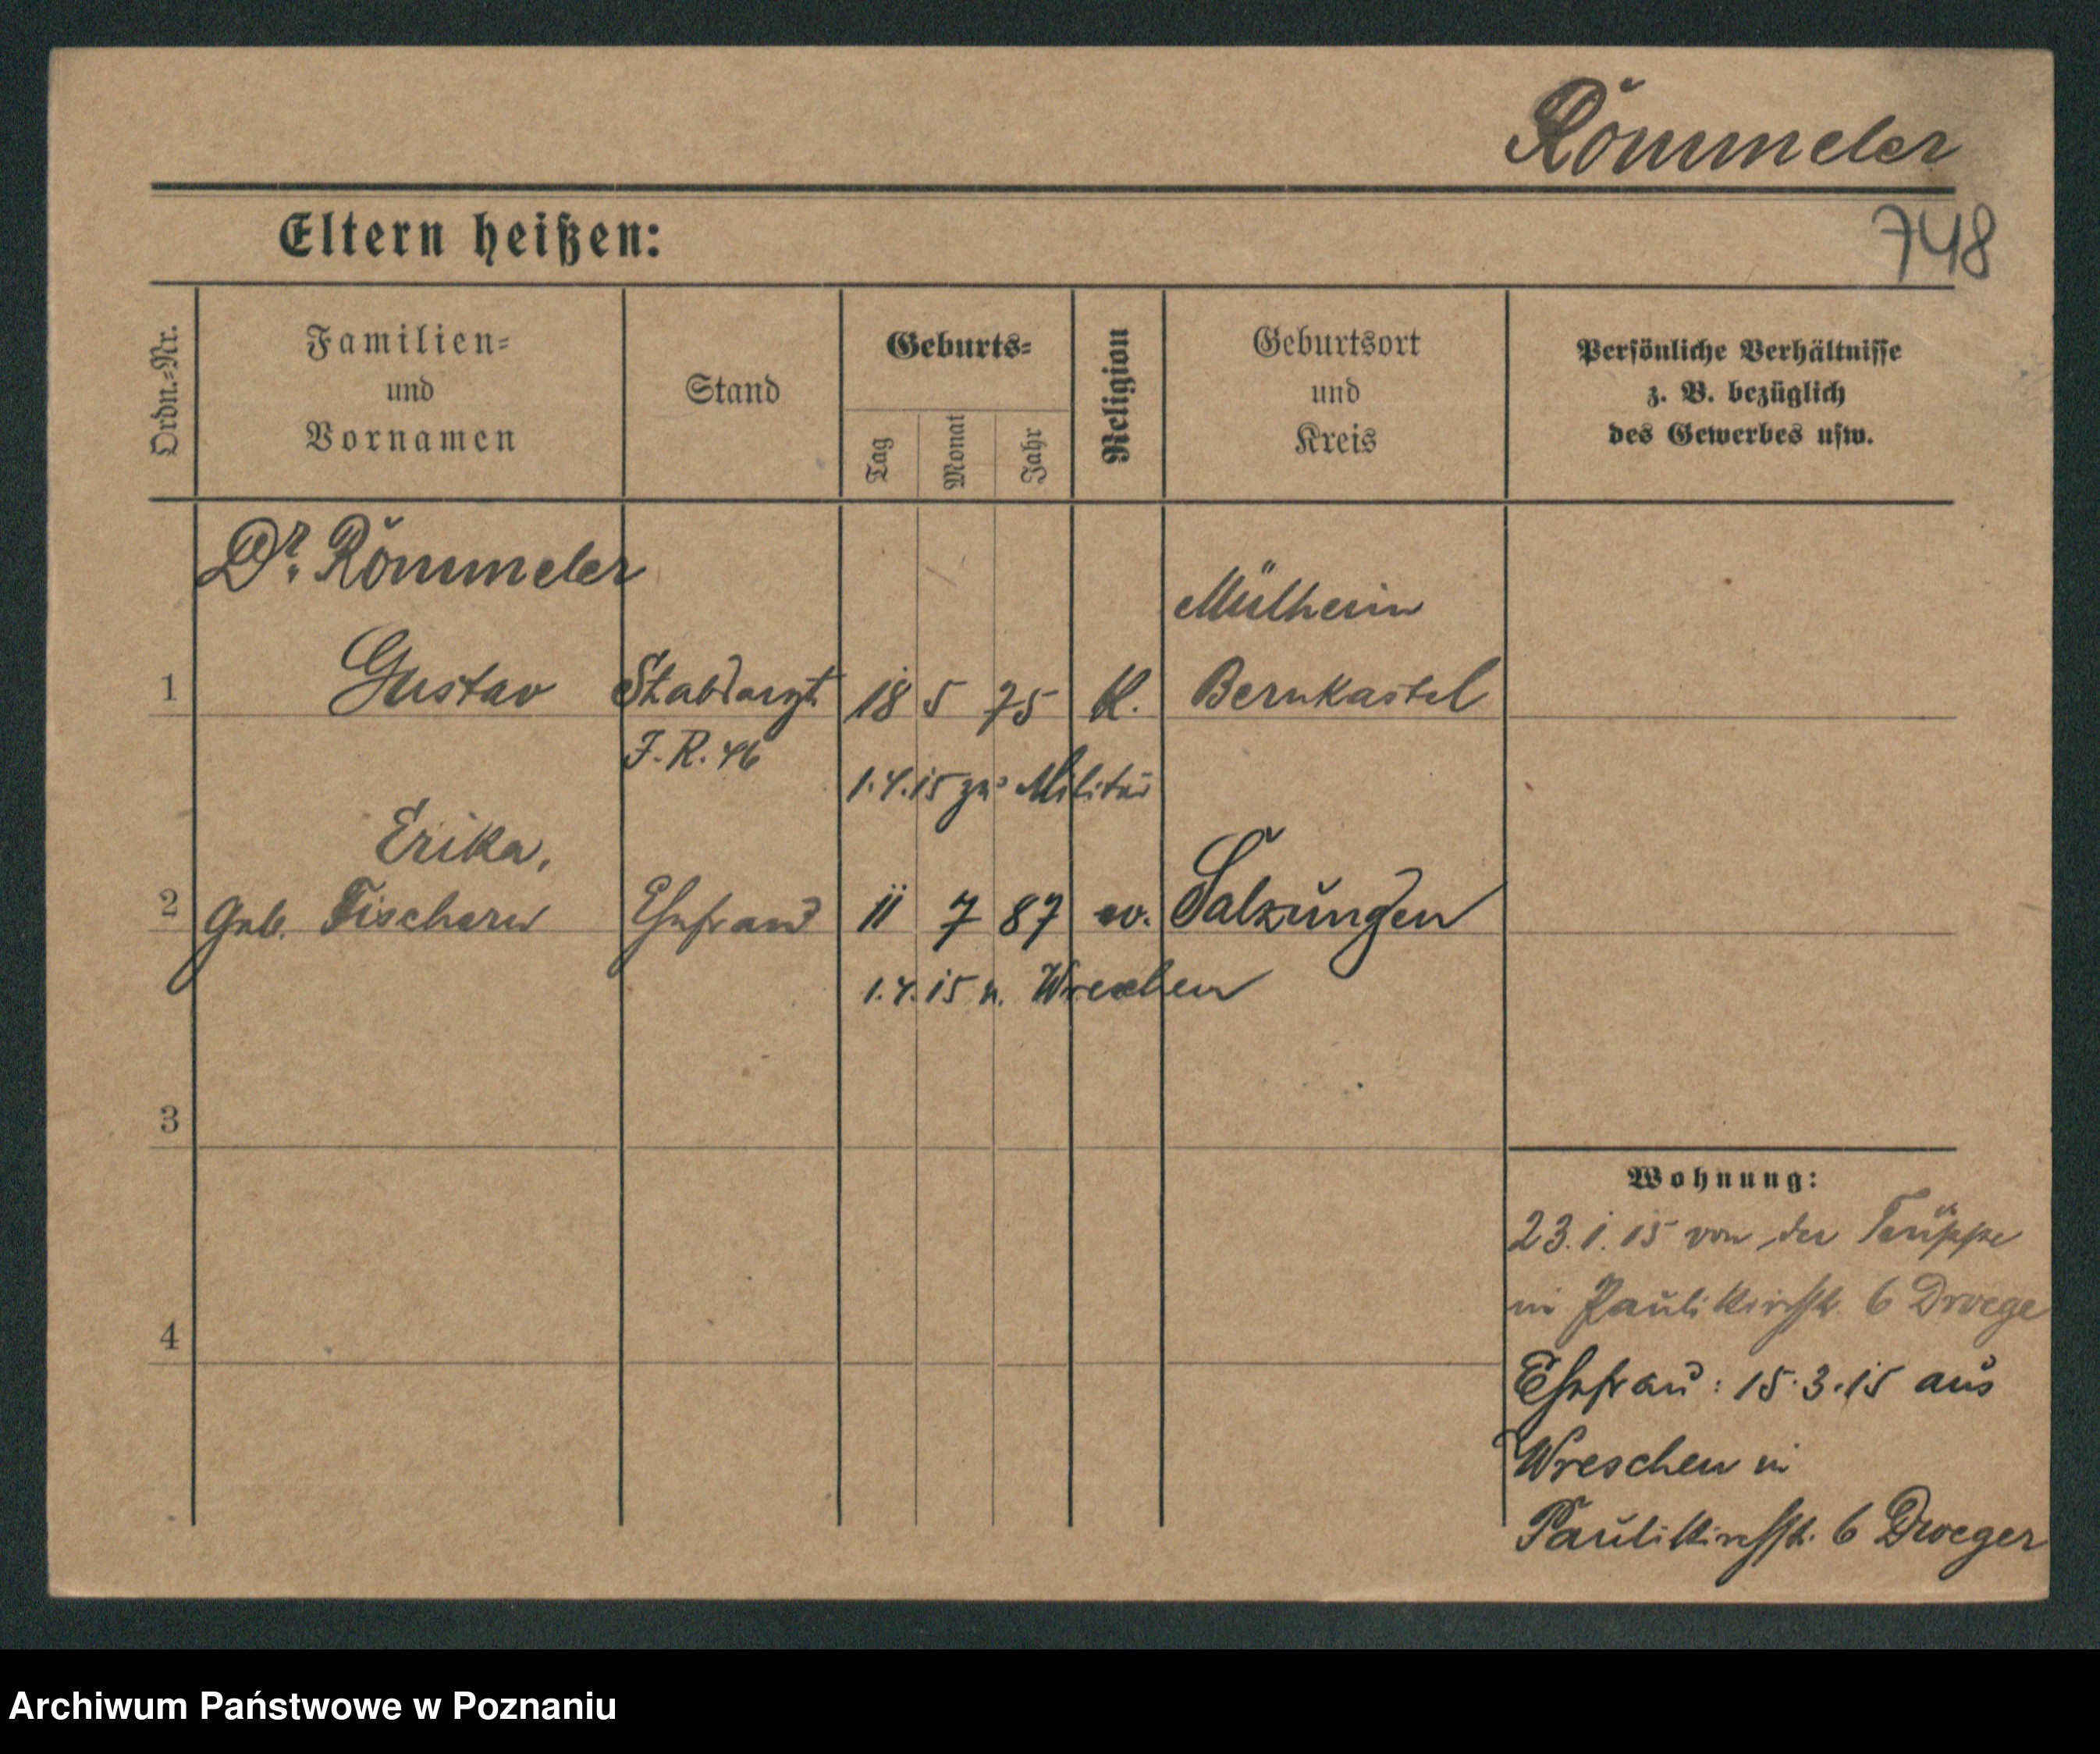 Römmeler
748
Eltern heißen:
Ordn.-Nr.
Familien-
und
Vornamen
Stand
Geburts-
Tag
Monat
Jahr
Religion
Geburtsort
und
Kreis
Persönliche Verhältnisse
z. B. bezüglich
des Gewerbes usw.
Dr. Römmeler
Mülheim
1 Gustav Stabsarzt 18 5 75 K. Bernkastel
I.R. 46
1.4.15 zu Militär
Erika,
2 Geb. Fischern Ehefrau 11 7 87 ev. Salzungen
1.4.15 n. Wreschen
3
Wohnung:
23.1.15 von der Truppe
in Paulikirchstr. 6 Droege
4
Ehefrau: 15.3.15 aus
Wreschen in
Paulikirchstr. 6 Droeger
Archiwum Państwowe w Poznaniu